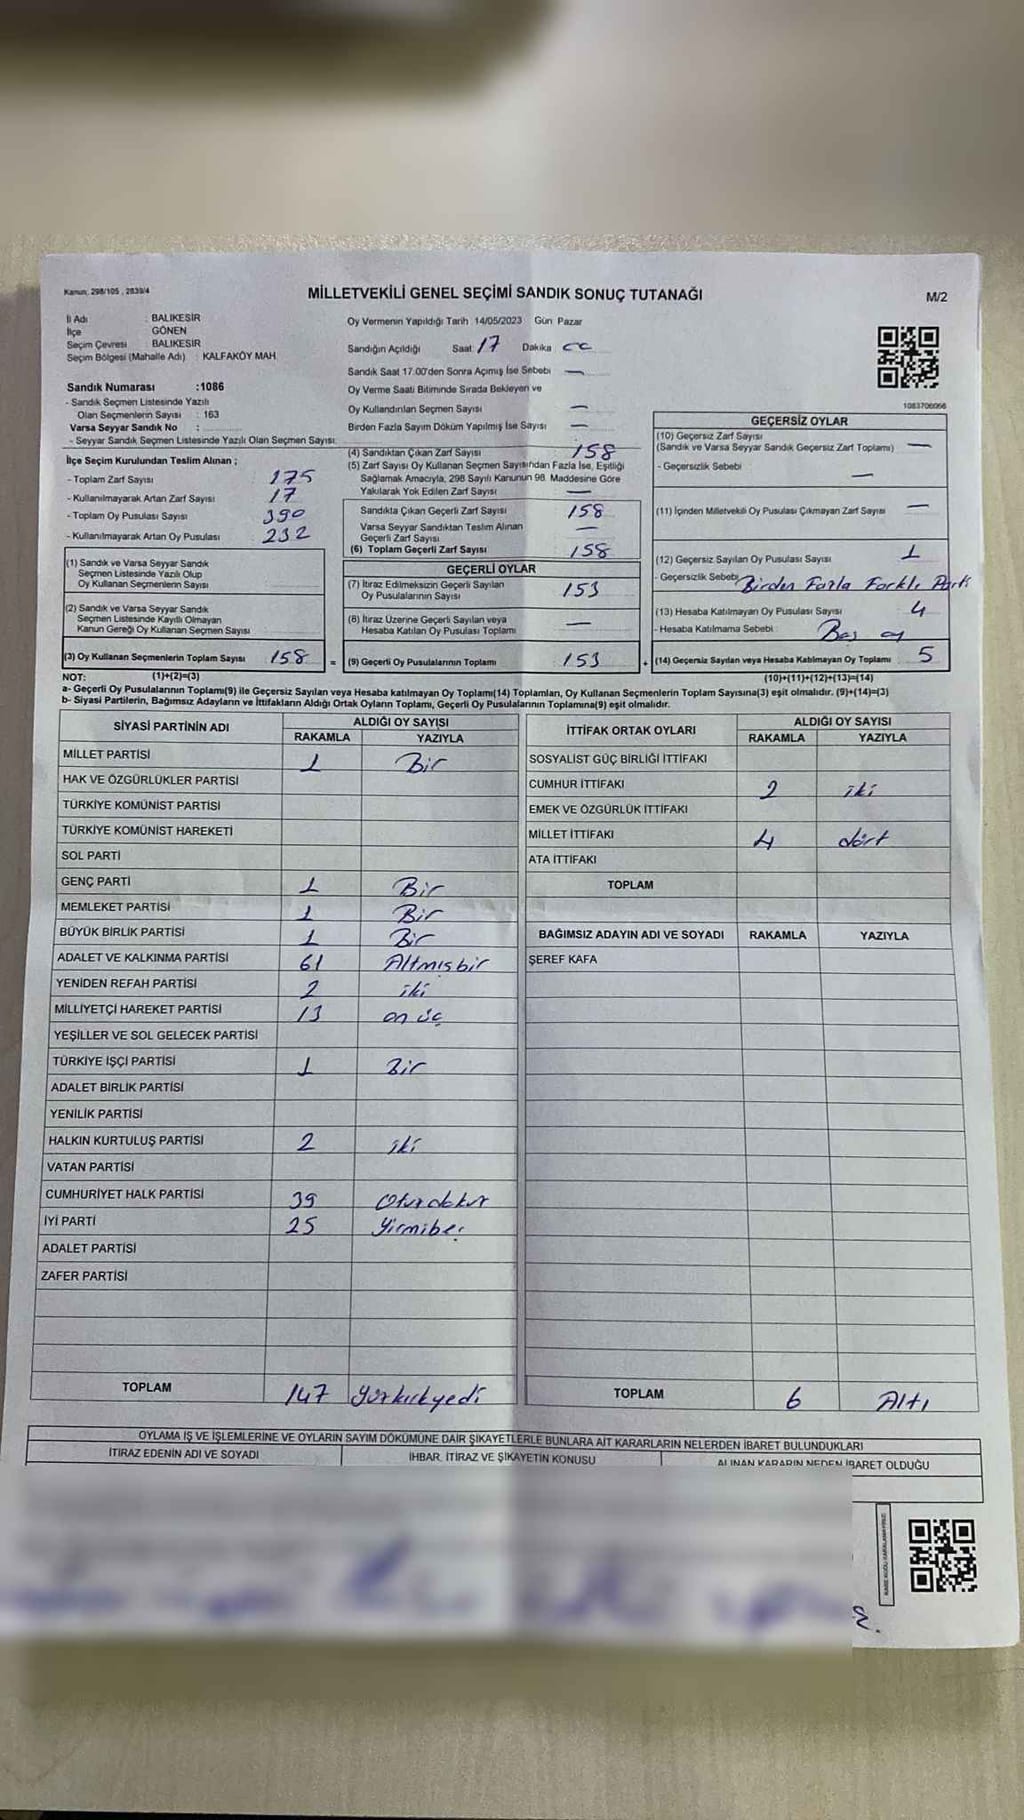 Kanun: 298/105 , 2839/4
MİLLETVEKİLİ GENEL SEÇİMİ SANDIK SONUÇ TUTANAĞI
M/2
İl Adı : BALIKESİR
İlçe : GÖNEN
Seçim Çevresi : BALIKESİR
Seçim Bölgesi (Mahalle Adı) : KALFAKÖY MAH.
Sandık Numarası :1086
- Sandık Seçmen Listesinde Yazılı
Olan Seçmenlerin Sayısı : 163
Varsa Seyyar Sandık No :
- Seyyar Sandık Seçmen Listesinde Yazılı Olan Seçmen Sayısı:
İlçe Seçim Kurulundan Teslim Alınan ;
- Toplam Zarf Sayısı 175
- Kullanılmayarak Artan Zarf Sayısı 17
- Toplam Oy Pusulası Sayısı 390
- Kullanılmayarak Artan Oy Pusulası 232
(1) Sandık ve Varsa Seyyar Sandık
Seçmen Listesinde Yazılı Olup
Oy Kullanan Seçmenlerin Sayısı
(2) Sandık ve Varsa Seyyar Sandık
Seçmen Listesinde Kayıtlı Olmayan
Kanun Gereği Oy Kullanan Seçmen Sayısı
(3) Oy Kullanan Seçmenlerin Toplam Sayısı 158 =
Oy Vermenin Yapıldığı Tarih :14/05/2023 Gün Pazar
Sandığın Açıldığı Saat: 17 Dakika
Sandık Saat 17.00'den Sonra Açımış İse Sebebi —
Oy Verme Saati Bitiminde Sırada Bekleyen ve
Oy Kullandırılan Seçmen Sayısı —
Birden Fazla Sayım Döküm Yapılmış İse Sayısı —
(4) Sandıktan Çıkan Zarf Sayısı 158
(5) Zarf Sayısı Oy Kullanan Seçmen Sayısından Fazla İse, Eşitliği
Sağlamak Amacıyla, 298 Sayılı Kanunun 98. Maddesine Göre
Yakılarak Yok Edilen Zarf Sayısı —
Sandıkta Çıkan Geçerli Zarf Sayısı 158
Varsa Seyyar Sandıktan Teslim Alınan
Geçerli Zarf Sayısı —
(6) Toplam Geçerli Zarf Sayısı 158
GEÇERLİ OYLAR
(7) İtiraz Edilmeksizin Geçerli Sayılan
Oy Pusulalarının Sayısı 153
(8) İtiraz Üzerine Geçerli Sayılan veya
Hesaba Katılan Oy Pusulası Toplamı —
(9) Geçerli Oy Pusulalarının Toplamı 153 +
1083706066
GEÇERSİZ OYLAR
(10) Geçersiz Zarf Sayısı
(Sandık ve Varsa Seyyar Sandık Geçersiz Zarf Toplamı) —
- Geçersizlik Sebebi —
(11) İçinden Milletvekili Oy Pusulası Çıkmayan Zarf Sayısı —
(12) Geçersiz Sayılan Oy Pusulası Sayısı 1
- Geçersizlik Sebebi Birden Fazla Farklı Parti
(13) Hesaba Katılmayan Oy Pusulası Sayısı 4
- Hesaba Katılmama Sebebi : Boş oy
(14) Geçersiz Sayılan veya Hesaba Katılmayan Oy Toplamı 5
NOT: (1)+(2)=(3)
(10)+(11)+(12)+(13)=(14)
a- Geçerli Oy Pusulalarının Toplamı(9) ile Geçersiz Sayılan veya Hesaba katılmayan Oy Toplamı(14) Toplamları, Oy Kullanan Seçmenlerin Toplam Sayısına(3) eşit olmalıdır. (9)+(14)=(3)
b- Siyasi Partilerin, Bağımsız Adayların ve İttifakların Aldığı Ortak Oyların Toplamı, Geçerli Oy Pusulalarının Toplamına(9) eşit olmalıdır.
SİYASİ PARTİNİN ADI ALDIĞI OY SAYISI
RAKAMLA YAZIYLA
MİLLET PARTİSİ 1 Bir
HAK VE ÖZGÜRLÜKLER PARTİSİ
TÜRKİYE KOMÜNİST PARTİSİ
TÜRKİYE KOMÜNİST HAREKETİ
SOL PARTİ
GENÇ PARTİ 1 Bir
MEMLEKET PARTİSİ 1 Bir
BÜYÜK BİRLİK PARTİSİ 1 Bir
ADALET VE KALKINMA PARTİSİ 61 Altmışbir
YENİDEN REFAH PARTİSİ 2 iki
MİLLİYETÇİ HAREKET PARTİSİ 13 on üç
YEŞİLLER VE SOL GELECEK PARTİSİ
TÜRKİYE İŞÇİ PARTİSİ 1 Bir
ADALET BİRLİK PARTİSİ
YENİLİK PARTİSİ
HALKIN KURTULUŞ PARTİSİ 2 iki
VATAN PARTİSİ
CUMHURİYET HALK PARTİSİ 39 Otuzdokuz
İYİ PARTİ 25 Yirmibeş
ADALET PARTİSİ
ZAFER PARTİSİ
TOPLAM 147 Yüzkırkyedi
İTTİFAK ORTAK OYLARI ALDIĞI OY SAYISI
RAKAMLA YAZIYLA
SOSYALİST GÜÇ BİRLİĞİ İTTİFAKI
CUMHUR İTTİFAKI 2 iki
EMEK VE ÖZGÜRLÜK İTTİFAKI
MİLLET İTTİFAKI 4 dört
ATA İTTİFAKI
TOPLAM
BAĞIMSIZ ADAYIN ADI VE SOYADI RAKAMLA YAZIYLA
ŞEREF KAFA
TOPLAM 6 Altı
OYLAMA İŞ VE İŞLEMLERİNE VE OYLARIN SAYIM DÖKÜMÜNE DAİR ŞİKAYETLERLE BUNLARA AİT KARARLARIN NELERDEN İBARET BULUNDUKLARI
İTİRAZ EDENİN ADI VE SOYADI İHBAR, İTİRAZ VE ŞİKAYETİN KONUSU ALINAN KARARIN NEDEN İBARET OLDUĞU